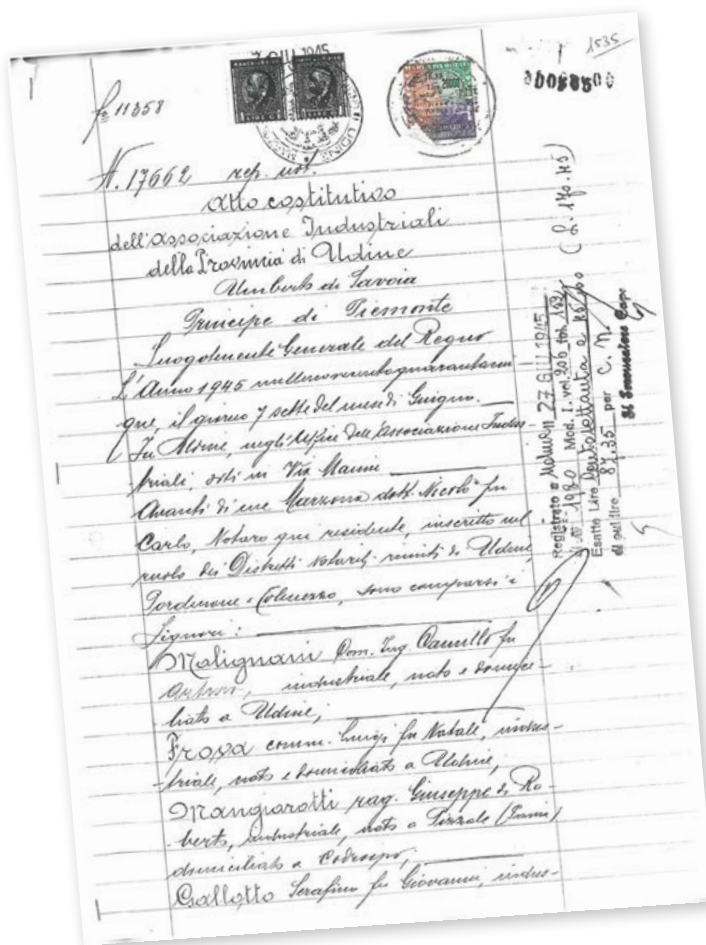 7 GIU 1945
1535
fz 11358
N. 17662 rep. not.
Atto costitutivo
dell'Associazione Industriali
della Provincia di Udine
Umberto di Savoia
Principe di Piemonte
Luogotenente Generale del Regno
L'Anno 1945 millenovecentoquarantacin
que, il giorno 7 sette del mese di Giugno.
In Udine, negli Uffici dell'Associazione Indus-
triali, siti in Via Manin
Avanti di me Marzona dott. Nicolò fu
Carlo, Notaro qui residente, inscritto nel
ruolo dei Distretti Notarili riuniti di Udine,
Pordenone e Tolmezzo, sono comparsi i
Signori:
Malignani Com. Ing. Camillo fu
Arturo, industriale, nato e domici-
liato a Udine;
Frova comm. Luigi fu Natale, indus-
triale, nato e domiciliato a Udine,
Mangiarotti rag. Giuseppe di Ro-
berto, industriale, nato a Pizzale (Pavia)
domiciliato a Codroipo;
Gallotto Serafino fu Giovanni, indus-
Registrato a Udine il 27 GIU 1945
N. 1980 Mod. I. vol. 206 fol. 182
Esatte Lire
di cui lire 87,35 per C. M.